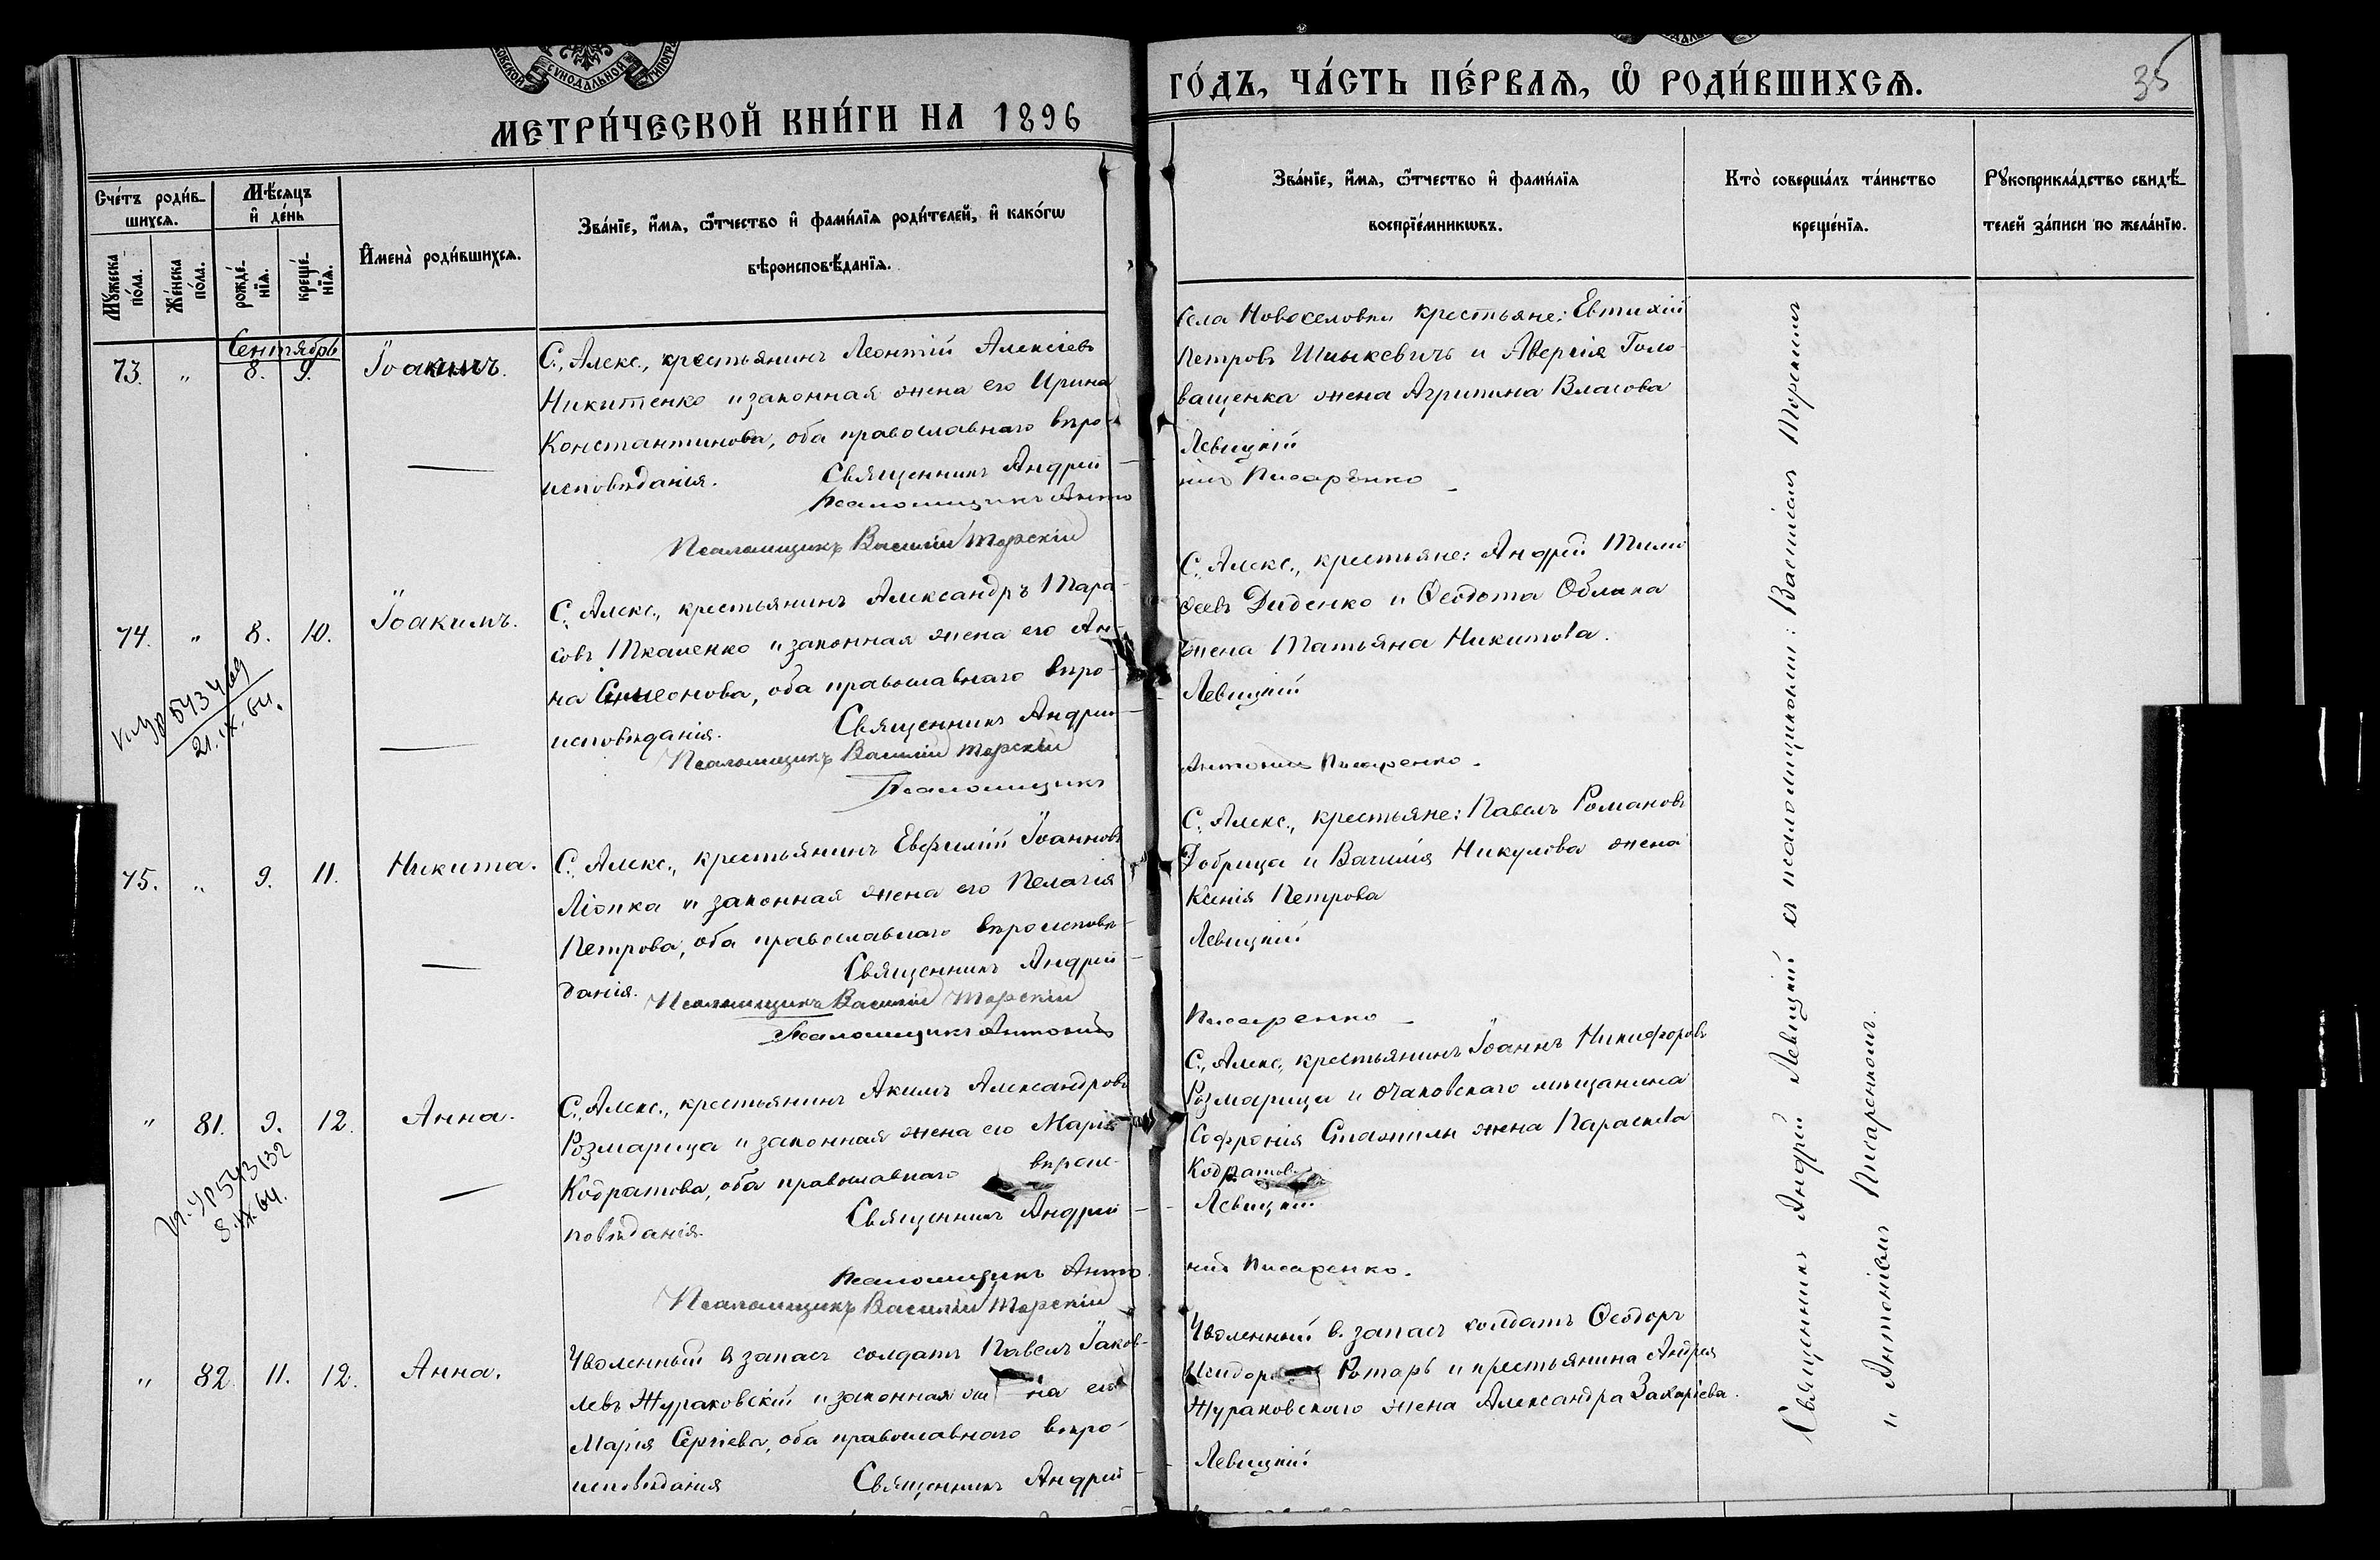 МЕТРИ́ЧЕСКОЙ КНИ́ГИ НА 1896
ГО́ДЪ, ЧА́СТЬ ПЕ́РВАѦ, Ѡ РОДИ́ВШИХСѦ.
35
Сче́тъ роди́в-
шихсѧ.
Мѣ́сѧцъ
и де́нь
Мꙋ́жеска
по́ла.
Же́нска
по́ла.
рожде́-
нїѧ.
креще́-
нїѧ.
Имена̀ роди́вшихсѧ.
Зва́нїе, и́мѧ, ѻ́тчество и фами́лїѧ роди́телей, и како́гѡ
вѣроисповѣ́данїѧ.
Зва́нїе, и́мѧ, ѻ́тчество и фами́лїѧ
воспрїе́мникѡвъ.
Кто̀ соверша́лъ та́инство
креще́нїѧ.
Рꙋкоприкла́дство свидѣ́-
телей за́писи по жела́нїю.
Сентябрь
73. " 8. 9. Іоакимъ.
С. Алекс., крестьянинъ Леонтій Алексіевъ
Никитенко и законная жена его Ирина
Константинова, оба православнаго вѣро-
исповѣданія. Священникъ Андрей
Псаломщикъ Анто
Псаломщикъ Василій Торскій
Села Новоселовки крестьяне: Евтихій
Петровъ Шинкевичъ и Аверкія Голо-
ващенка жена Агрипина Власова
Левицкій
ній Писаренко
74. " 8. 10. Іоакимъ.
С. Алекс., крестьянинъ Александръ Тара-
совъ Ткаченко и законная жена его Ан-
на Симеонова, оба православнаго вѣро-
исповѣданія. Священникъ Андрей
Псаломщикъ Василій Торскій
Псаломщикъ
С. Алекс., крестьяне: Андрей Тимо
ѳеевъ Диденко и Ѳеодота Облапа
жена Татьяна Никитова.
Левицкій
Антоній Писаренко.
21.IX.64.
75. " 9. 11. Никита.
С. Алекс., крестьянинъ Евфимій Іоанновъ
Ліопка и законная жена его Пелагія
Петрова, оба православнаго вѣроисповѣ-
данія. Священникъ Андрей
Псаломщикъ Василій Торскій
Псаломщикъ Антоній
С. Алекс., крестьяне: Павелъ Романовъ
Добрица и Василія Никулова жена
Ксенія Петрова
Левицкій
Писаренко
" 81. 9. 12. Анна.
С. Алекс., крестьянинъ Акимъ Александровъ
Розмарица и законная жена его Марія
Кодратова, оба православнаго вѣроис-
повѣданія. Священникъ Андрей
Псаломщикъ Анто
Псаломщикъ Василій Торскій
С. Алекс., крестьянинъ Іоаннъ Никифоровъ
Розмарица и очаковскаго мѣщанина
Софронія жена Параскева
Кодратова
Левицкій
ній Писаренко.
" 82. 11. 12. Анна.
Уволенный въ запасъ солдатъ Павелъ Іаков-
левъ Жураковскій и законная жена его
Марія Сергіева, оба православнаго вѣро-
исповѣданія Священникъ Андрей
Уволенный в. запасъ солдатъ Ѳеодоръ
Исидоровъ Ротарь и крестьянина Андрея
Жураковскаго жена Александра Захаріева.
Левицкій
Священникъ Андрей Левицкій съ псаломщиками: Василіемъ Торскимъ
и Антоніемъ Писаренкомъ.